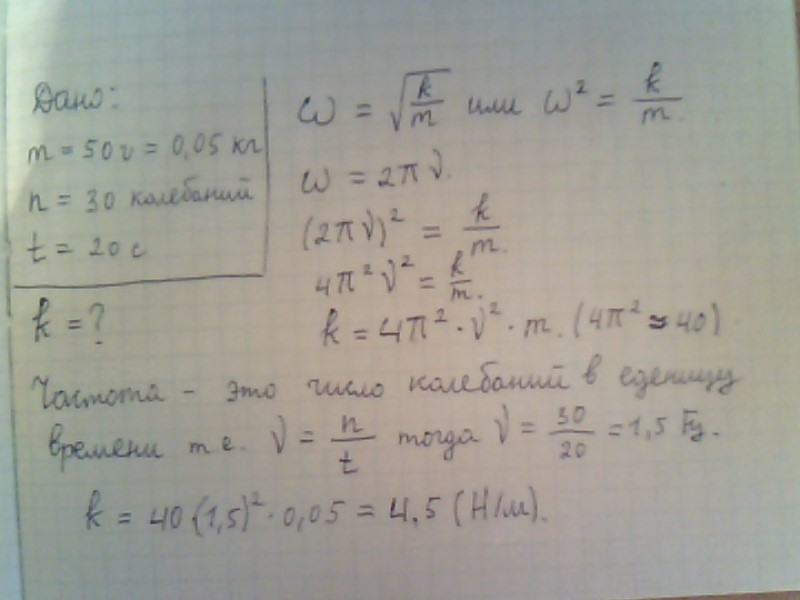 Дано:
m = 50 г = 0,05 кг
n = 30 колебаний
t = 20 с
k = ?
ω = √(k/m) или ω² = k/m.
ω = 2πν.
(2πν)² = k/m.
4π²ν² = k/m.
k = 4π² · ν² · m. (4π² ≈ 40)
Частота - это число колебаний в еденицу
времени т.е. ν = n/t тогда ν = 30/20 = 1,5 Гц.
k = 40·(1,5)² · 0,05 = 4,5 (Н/м).